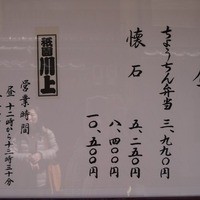 ちょうちん弁当 三、九九〇円
懐石 五、二五〇円
八、四〇〇円
一〇、五〇〇円
祇園 川上
営業時間
昼 十二時から十三時三十分